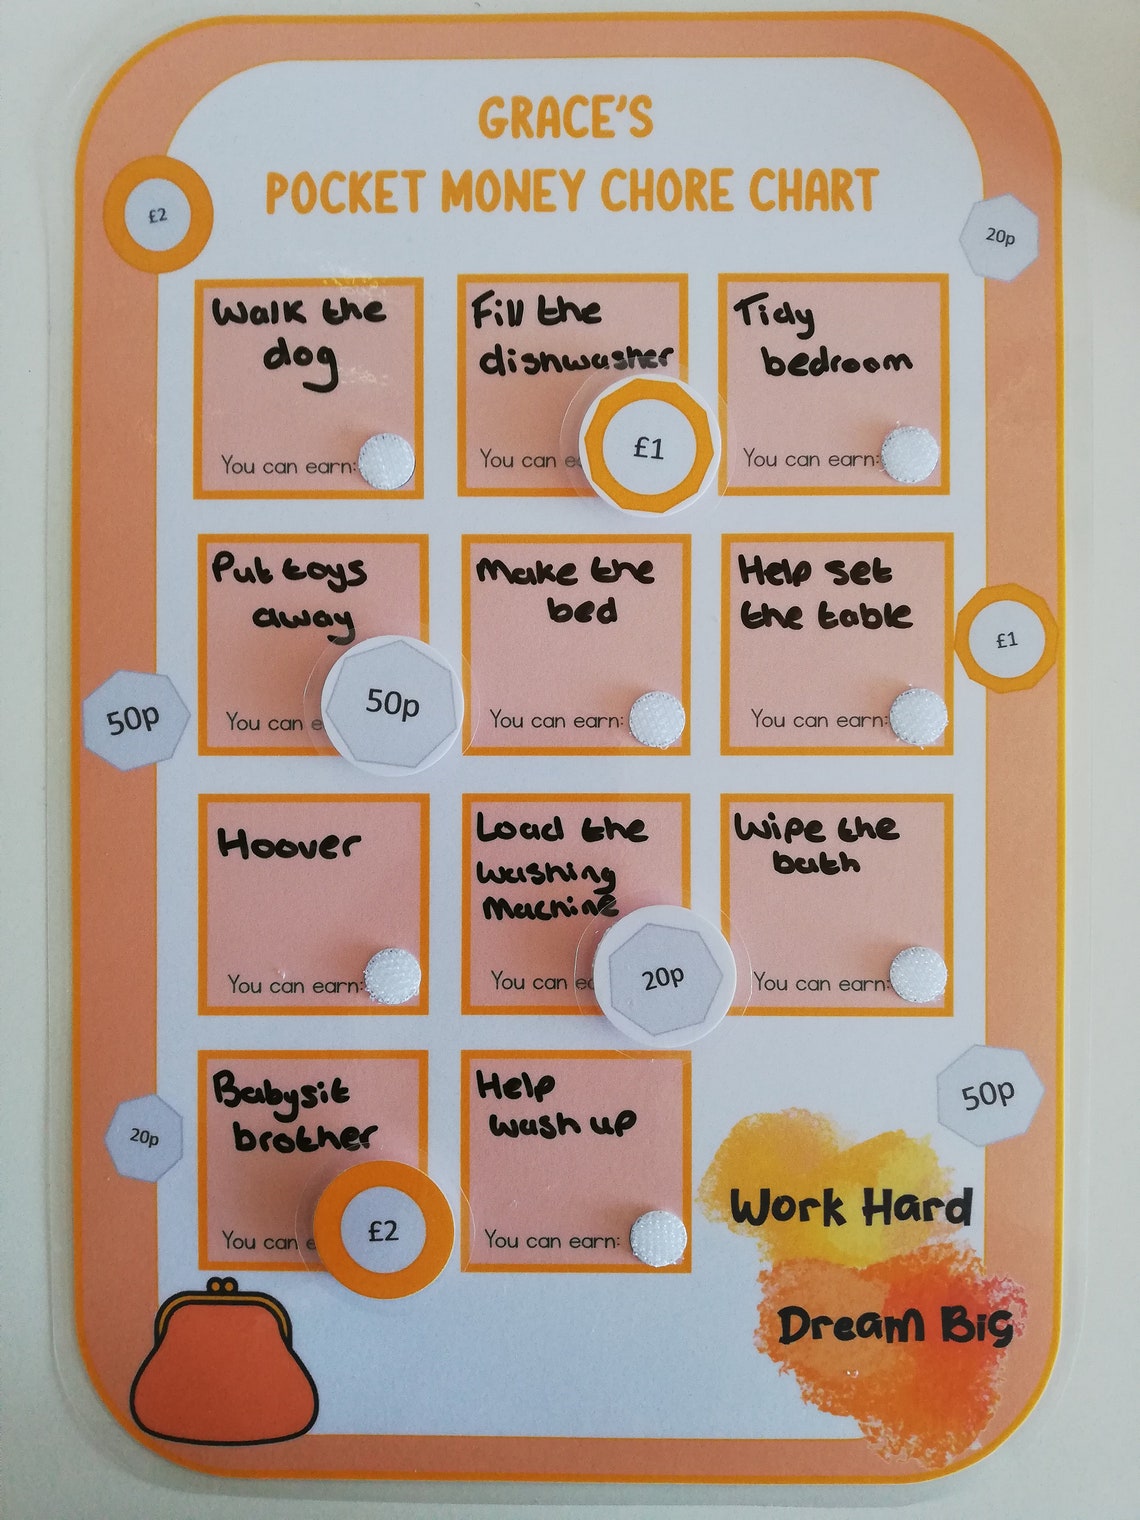 GRACE'S
POCKET MONEY CHORE CHART
£2
20p
Walk the
dog
You can earn:
Fill the
dishwasher
You can e
£1
Tidy
bedroom
You can earn:
Put toys
away
You can e
50p
Make the
bed
You can earn:
Help set
the table
You can earn:
£1
50p
Hoover
You can earn:
Load the
washing
Machine
You can ea
20p
Wipe the
bath
You can earn:
Babysit
brother
You can e
£2
Help
wash up
You can earn:
20p
50p
Work Hard
Dream Big